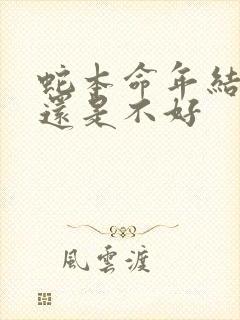 蛇本命年結
還是不好
風雲渡